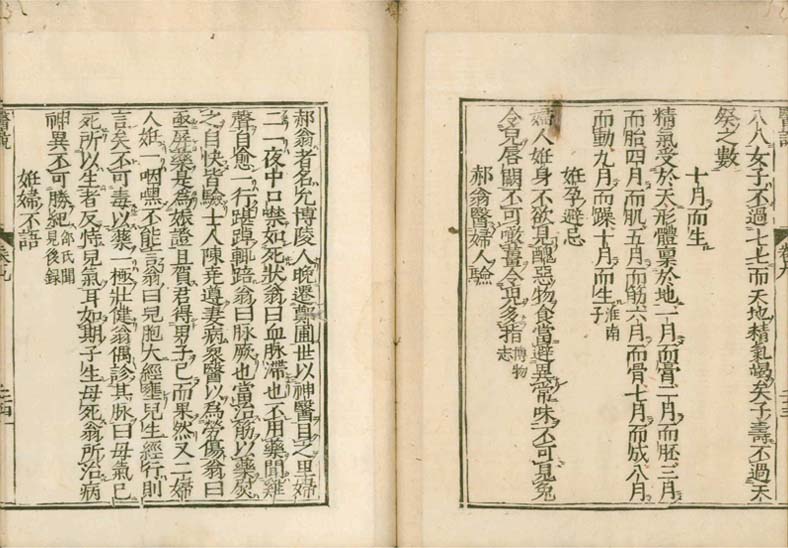 八八女子不過七七而天地精氣竭矣子壽不過天
癸之數
十月而生
精氣受於天形體稟於地一月而膏二月而胚三月
而胎四月而肌五月而筋六月而骨七月而成八月
而動九月而躁十月而生淮南子
姙孕避忌
婦人姙身不欲見醜惡物食當避異常味不可見兔
令兒唇闕不可噉薑令兒多指博物志
郝翁醫婦人驗
郝翁者名允博陵人晚遷鄭圃世以神醫目之里婦
二一夜中口噤如死狀翁曰血脉滯也不用藥聞雞
聲自愈一行踸踔輒踣翁曰脉厥也當治筋以藥熨
之自快皆驗士人陳堯遵妻病衆醫以為勞傷翁曰
亟屏藥是為娠證且賀君得男子已而果然又二婦
人姙一咽嘿不能言翁曰兒胞大經壅兒生經行則
言矣不可毒以藥一極壯健翁偶診其脉曰母氣已
死所以生者反恃兒氣耳如期子生母死翁所治病
神異不可勝紀見邵氏聞見後録
姙婦不語
醫說
卷九